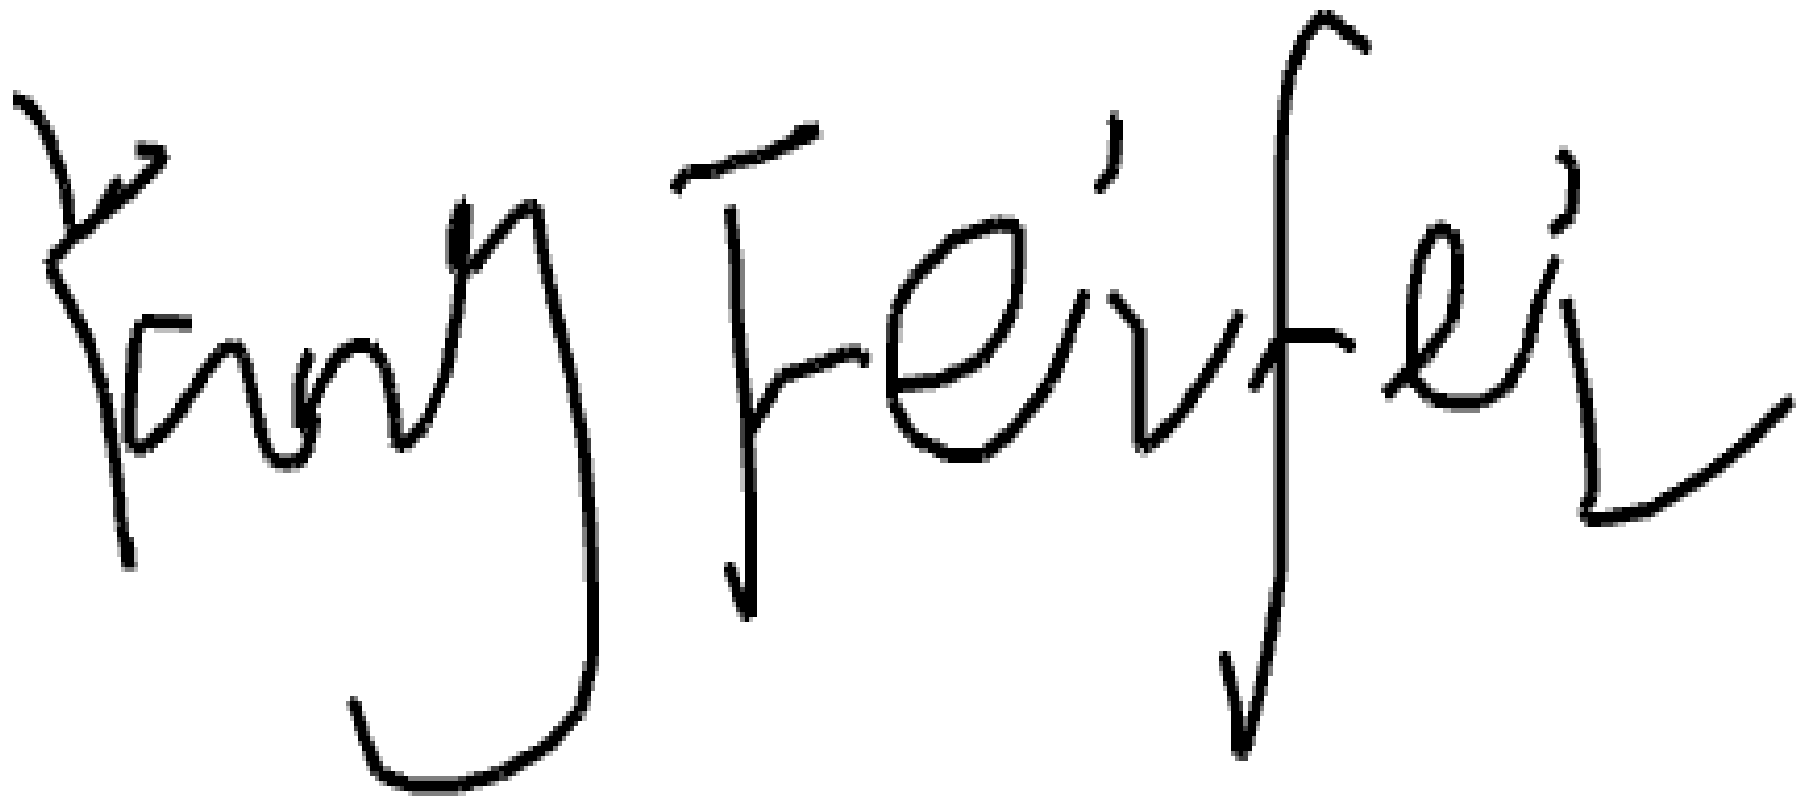 Yang Feifei